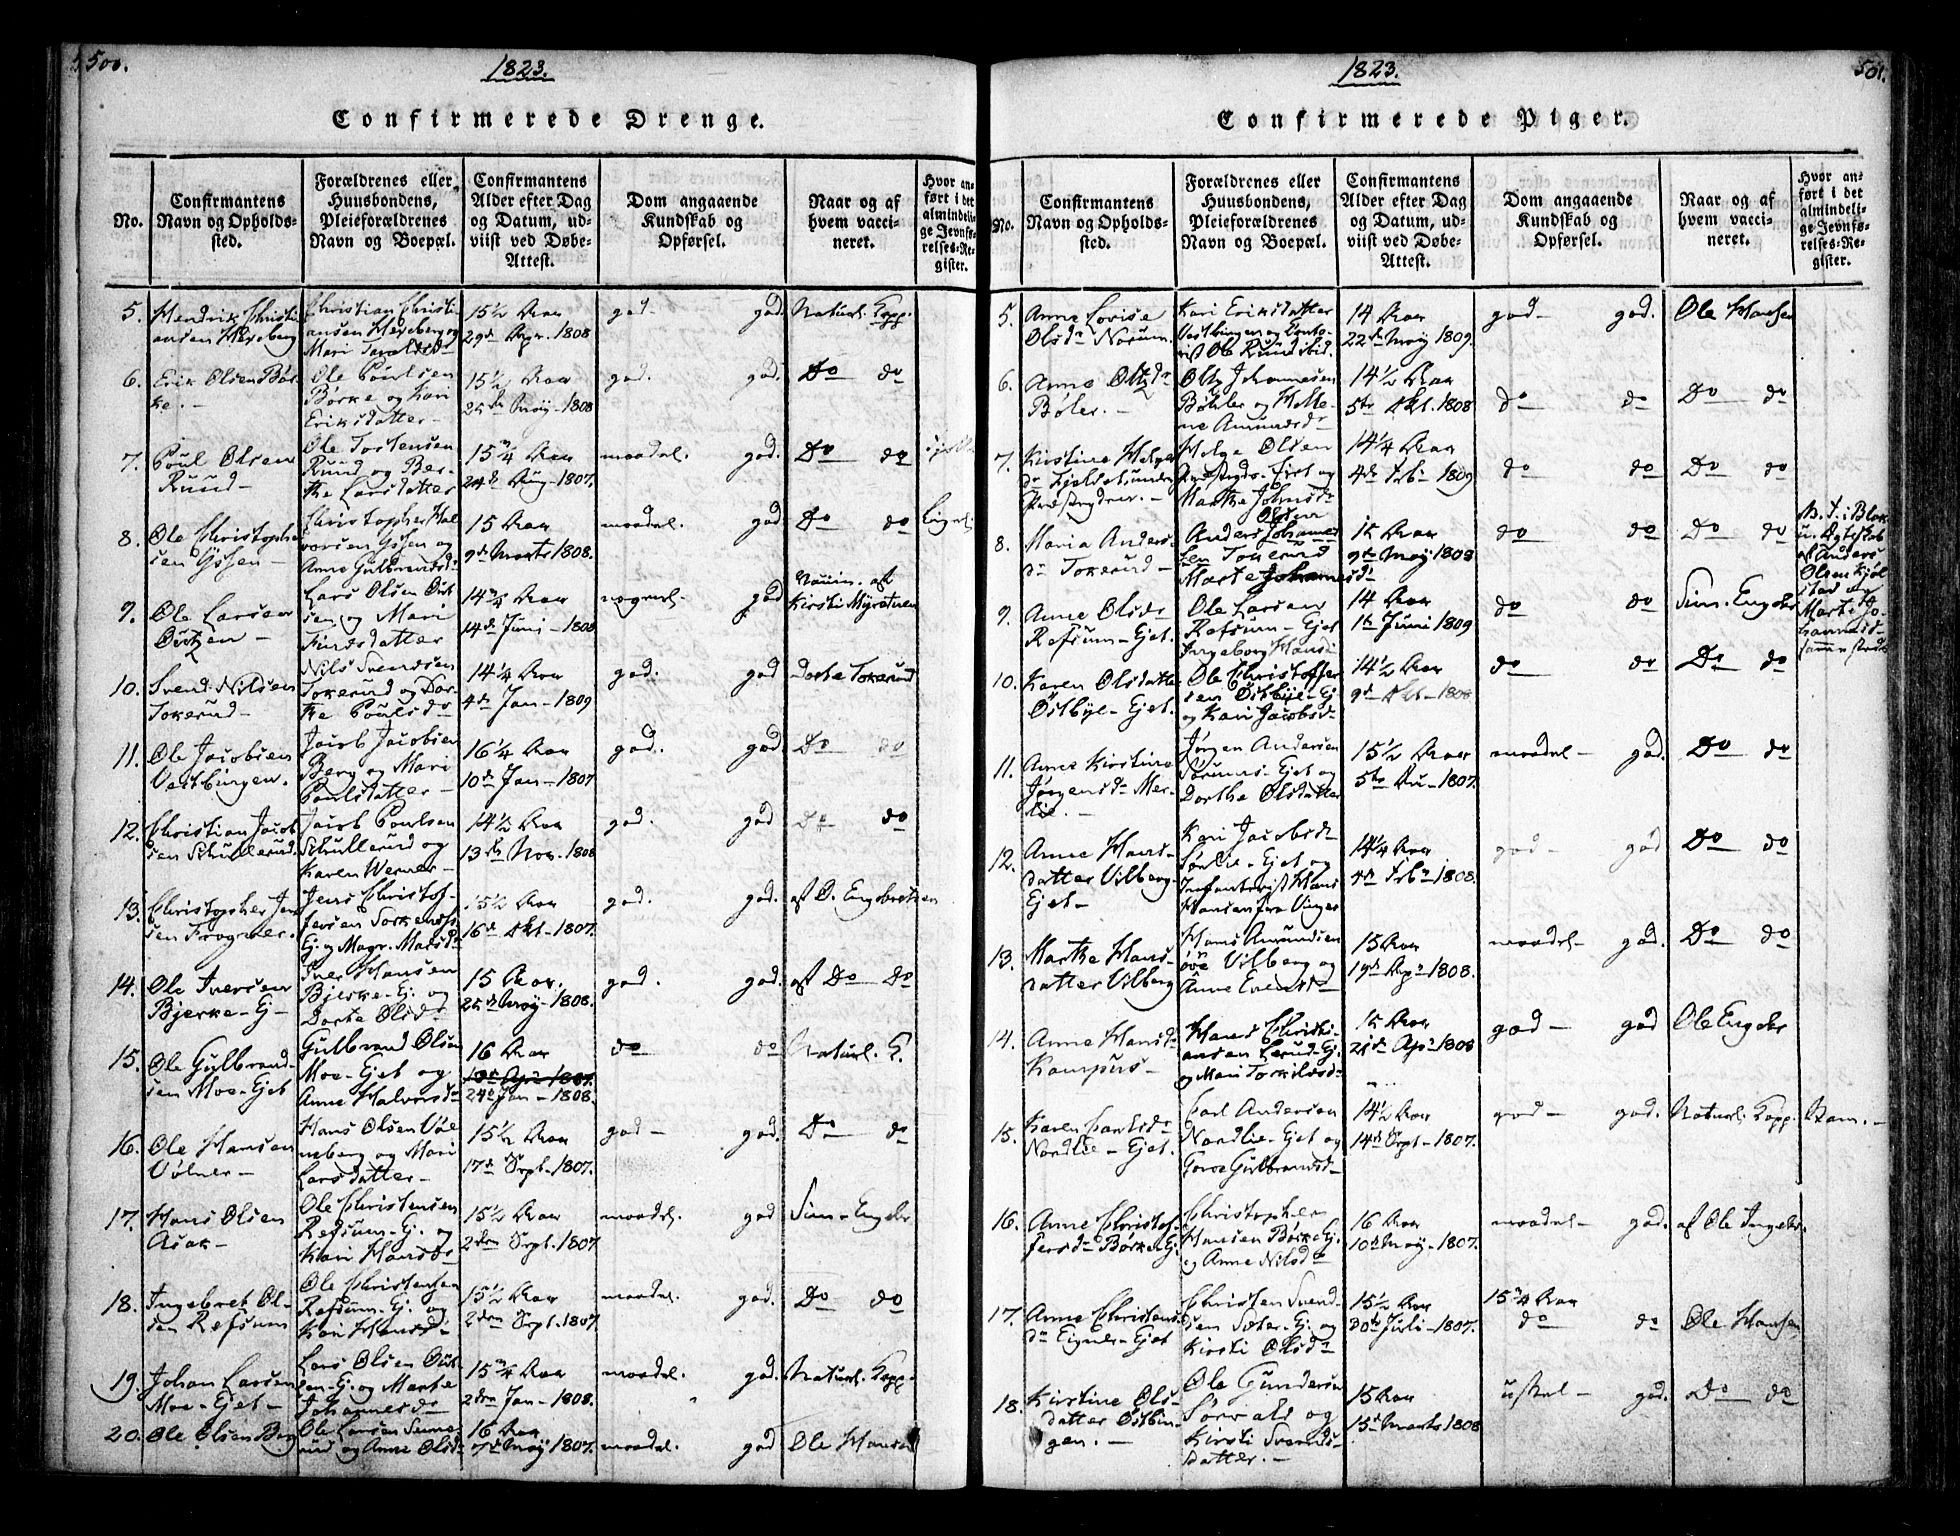 500.
1823.
Confirmerede Drenge.
No.
Confirmantens
Navn og Opholds-
sted.
Forældrenes eller
Huusbondens,
Pleieforældrenes
Navn og Boepæl.
Confirmantens
Alder efter Dag
og Datum, ud-
viist ved Døbe-
Attest.
Dom angaaende
Kundskab og
Opførsel.
Naar og af
hvem vacci-
neret.
Hvor an-
ført i det
almindeli-
ge Jevnfø-
relses-Re-
gister.
5.
Hendrik Christi
ansen Hexeberg
Christian Christi
ansen Hexeberg og
Mari Taraldsdr
15 1/2 Aar
29de Apr. 1808
god - god.
Naturl. Kopp.
6.
Erik Olsen Bør-
ke. -
Ole Poulsen
Børke og Kari
Eriksdatter -
15 1/2 Aar
25de May - 1808
god. god.
Do do
7.
Poul Olsen
Ruud -
Ole Torstensen
Ruud og Ber-
the Larsdatter
15 3/4 Aar
24de Aug - 1807.
maadel. god.
Do do
8.
Ole Christophe
sen Gssen -
Christopher Hal
vorsen Gssen og
Anne Gulbrandsdr
15 Aar
9de Marts 1808.
maadel. god
Do do
9.
Ole Larsen
Lars Olsen
sen og Mari
Finnsdatter
14 3/4 Aar
14de Juni - 1808
god
af
Kirsti Myrstuen
10.
Svend Nilsen
Tokerud -
Nils Svendsen
Tokerud og Dor-
the Poulsdr
14 1/4 Aar
4de Jan - 1809
god. god
Dorte Tokerud
11.
Ole Jacobsen
Vestbingen.
Jacob Jacobsen
Berg og Mari
Poulsdatter -
16 1/4 Aar
10de Jan - 1807
god. god
Do do
12.
Christian Jacob
sen Schullerud.
Jacob Poulsen
Schullerud og
Karen Werner -
14 1/2 Aar
13de Nov. - 1808
god. god
Do do
13.
Christopher Jen
sen Frogner.
Jens Christof-
fersen
Ej. og Magr. Madsdr
15 1/2 Aar
16de Okt - 1807.
god. god.
af O. Engebretsen
14.
Ole Iversen
Bjerke - Ej -
Iver Hansen
Bjerke - Ej. og
Dorte Olsdr
15 Aar.
25de May - 1808.
god. god.
af Do Do
15.
Ole Gulbrand-
sen Moe - Ejet
Gulbrand Olsen
Moe - Ejet og
Anne Halvorsdr
16 Aar
10de Apr 1807.
24de Jan - 1808.
do do
Naturl. K.
16.
Ole Hansen
Vølner -
Hans Olsen Vøl
neberg og Mari
Larsdatter -
15 1/2 Aar
17de Sept - 1807.
god - god.
Do do
17.
Hans Olsen
Asak -
Ole Christensen
Refsum - Ej. og
Kari Hansdr
15 1/2 Aar
2den Sept. 1807
maadel. god
Sim - Engebr
18.
Ingebret Ol-
sen Refsum
Ole Christensen
Refsum - Ej. og
Kari Hansdr
15 1/2 Aar
2den Sept. 1807.
maadel. god.
Do do
19.
Johan Larsen
Moe - Ejet -
Lars Olsen
Ej. og Marte
Johannesdr
15 3/4 Aar
2den Jan - 1808.
maadel. god.
Naturl. Kopp.
20.
Ole Olsen Berg
Ole Larsen
rud og Anne Olsdr
16 Aar
7de May - 1807.
maadel. god
Ole Hansen
501.
1823.
Confirmerede Piger.
No.
Confirmantens
Navn og Opholds-
sted.
Forældrenes eller
Huusbondens,
Pleieforældrenes
Navn og Boepæl.
Confirmantens
Alder efter Dag
og Datum, ud-
viist ved Døbe-
Attest.
Dom angaaende
Kundskab og
Opførsel.
Naar og af
hvem vacci-
neret.
Hvor an-
ført i det
almindeli-
ge Jevnfø-
relses-Re-
gister.
5.
Anne Lovise
Olsdr Norum.
Kari Eriksdatter
Vestbingen og
Ole Ruudsbid.
14 Aar
22de May 1809.
god - god.
Ole Hansen
6.
Anne
Bøler. -
Johannesen
Bøhler og Helle-
ne Amundsdr
14 1/2 Aar
5te Okt. 1808
do do
Do do
7.
Kirstine Helge
dr
Helge Olsen
og
Marthe Johnsdr
14 1/4 Aar
4de Feb - 1809
do do
Do do
8.
Maria Anders
dr Tokerud -
Olsen
Anders Johannes
sen Tokerud
Marte Johannesdr
15 Aar
9de May 1808
do do
Do do
Anders
Olsen
og
Marte Jo-
hannesdr
9.
Anne Olsdr
Refsum - Ejet.
Ole Larsen
Refsum - Ejet
Ingeborg Hansdr
14 Aar
1te Juni 1809
do do
Sim. Engebr
10.
Karen Olsdatter
Østbye - Ejet.
Ole Christoffer
sen Østbye - Ej
og Kari Jacobsdr
14 1/2 Aar
9de Okt - 1808
do do
Do do
11.
Anne Kirstine
Jørgensdr Mer-
lie. -
Jørgen Andersen
Sørums - Ejet og
Dorthe Olsdatter
15 1/2 Aar
5te Au - 1807.
maadel - god.
Do do
12.
Anne Hans-
datter Vilberg -
Ejet -
Kari Jacobsdr
Sørlie - Ejet og
Infanterist Hans
Hansen fra Vinger
14 1/4 Aar
4de Feb - 1808.
god - god
Do do
13.
Marthe Hans-
datter Vilberg
Hans Amundsen
øve Vilberg og
Anne Evensdr
15 Aar
19de Apr 1808.
maadel - god.
Do do
14.
Anne Hansdr
Kampus -
Hans Christi-
ansen Lerud - Ej.
og Mari Torkildsdr
15 Aar
21de Apr 1808
god - god
Ole Engebr
15.
Karen Carlsdr
Nordlie - Ejet.
Carl Andersen
Nordlie - Ejet og
Gurie Gulbrandsdr
14 1/2 Aar
14de Sept - 1807.
god - god.
Naturl. Kopp.
16.
Anne Christof-
fersdr Børke - Ej.
Christopher
Hansen Børke Ej.
og Anne Nilsdr
16 Aar
10de May - 1807.
maadel - god.
af Ole Ingebr
17.
Anne Christens
dr Eigner - Ejet
Christen Svend-
sen Sæter - Ej. og
Kirsti Olsdr
15 1/2 Aar
30te Juli - 1807.
15 3/4 Aar
do do
Ole Hansen
18.
Kirstine Ols-
datter Østbin-
gen. -
Ole Gundersen
Sørvald og
Kirsti Svends-
datter. -
15 Aar
15de Marts 1808
uskel - god.
Do do